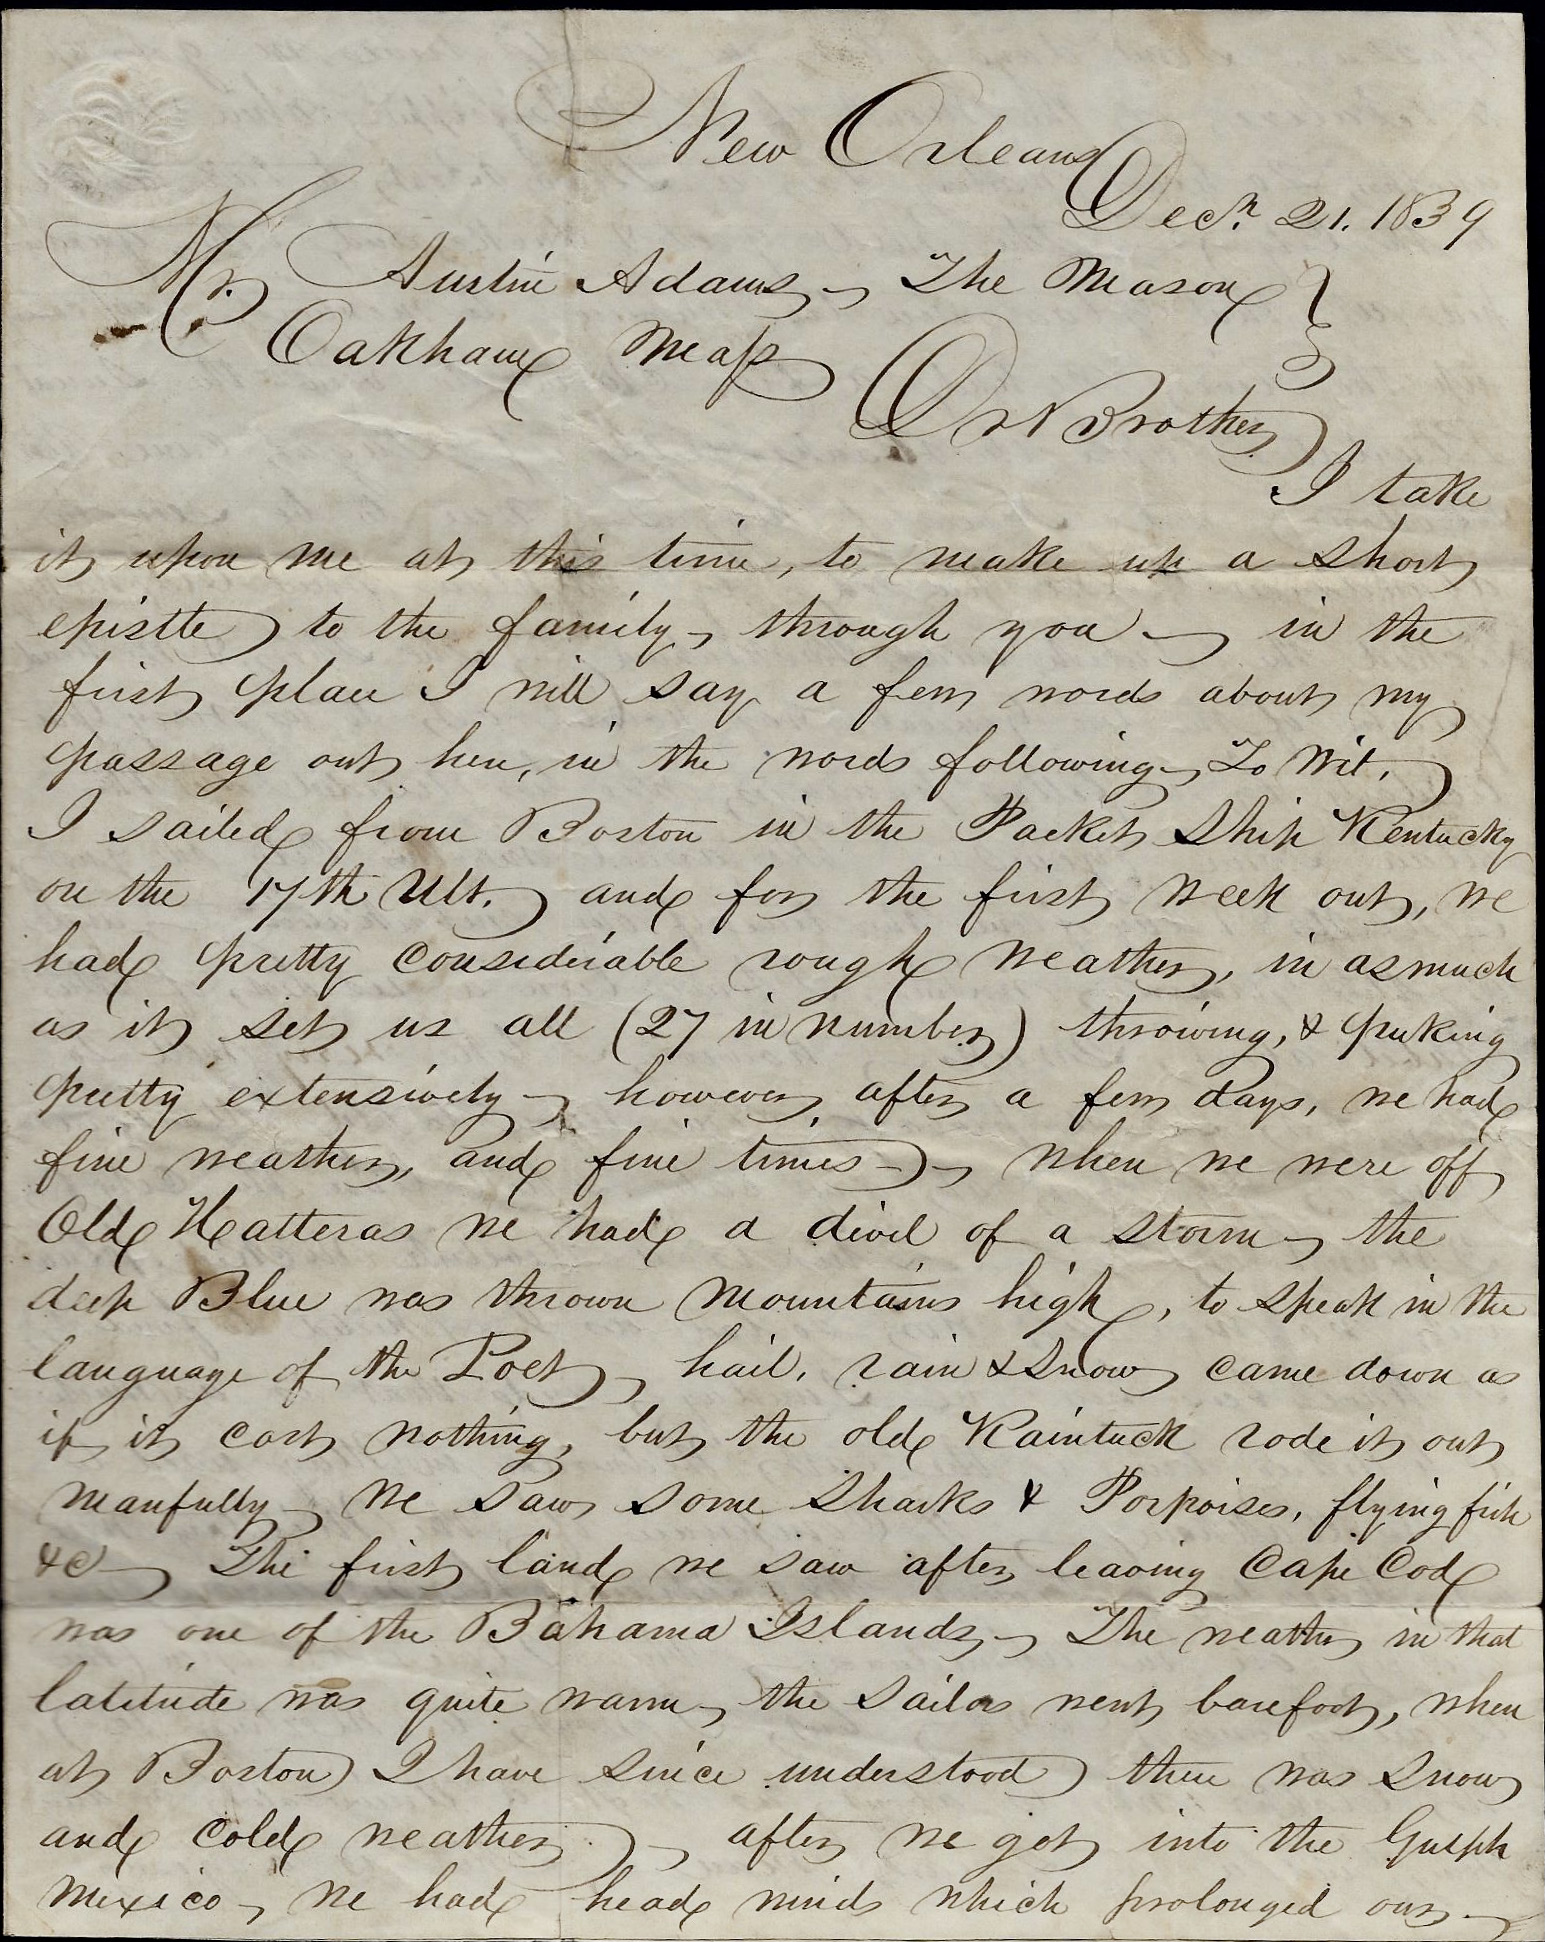 New Orleans
Decr. 21. 1839
Mr. Austin Adams - The Mason
Oakham Mass
Dr Brother
I take
it upon me at this time, to make up a short
epistle to the family - through you - in the
first place I will say a few words about my
passage out here, in the words following - To Wit.
I sailed from Boston in the Packet Ship Kentucky
on the 17th Ult. and for the first week out, we
had pretty considerable rough weather, in asmuch
as it set us all (27 in number) throwing, & puking
pretty extensively - however after a few days, we had
fine weather, and fine times - when we were off
Old Hatteras we had a divil of a storm - the
deep Blue was thrown mountains high, to speak in the
language of the Poet - hail, rain & snow came down as
if it cost nothing, but the old Kaintuck rode it out
manfully - we saw some Sharks & Porpoises, flying fish
&c - The first land we saw after leaving Cape Cod
was one of the Bahama Islands - The weather in that
latitude was quite warm - the sailors went barefoot, when
at Boston I have since understood there was snow
and cold weather - after we got into the Gulph
Mexico - we had head winds which prolonged our -